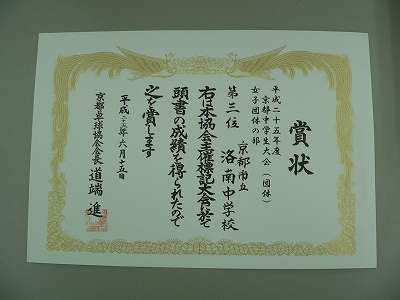 賞状
平成二十五年度
京都中学生大会（団体）
女子団体の部
第三位
京都市立
洛南中学校
右は本協会主催標記大会に於て
頭書の成績を得られたので
之を賞します
平成二十五年六月十五日
京都卓球協会会長 道端 進